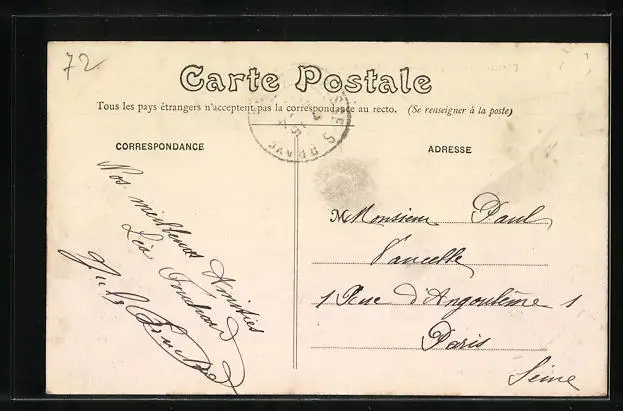 72
Carte Postale
Tous les pays étrangers n'acceptent pas la correspondance au recto. (Se renseigner à la poste)
CORRESPONDANCE
ADRESSE
Nos meilleures Amitiés
Léa
M Monsieur Paul
Vancelle
1 Rue d'Angoulême 1
Paris
Seine